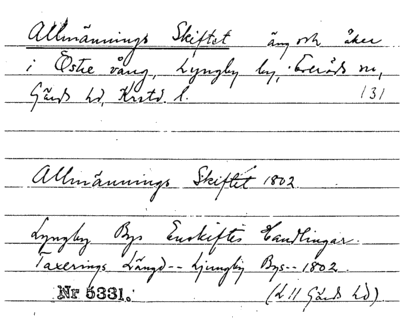 Allmännings Skiftet äng och åker
i Östre vång, Lyngby by, Everöds sn,
Gärds hd, Krstd. l. 131
Allmännings Skiftet 1802
Lyngby Bys Enskiftes Handlingar.
Taxerings Längd -- Ljungby Bys -- 1802.
Nr 5331. (L II Gärds hd)